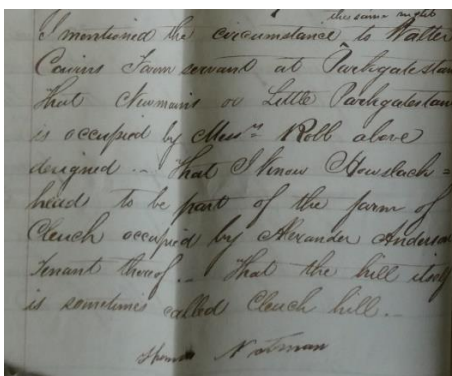 the same night
I mentioned the circumstance to Walter
Cowens Farm servant at Parkgatestan
That Newmains or Little Parkgatestan
is occupied by Messrs Robb above
designed .. That I know Howslack=
head to be part of the farm of
Cleuch occupied by Alexander Anderson
Tenant thereof .. That the hill itself
is sometimes called Cleuch hill ..
Thomas Notman